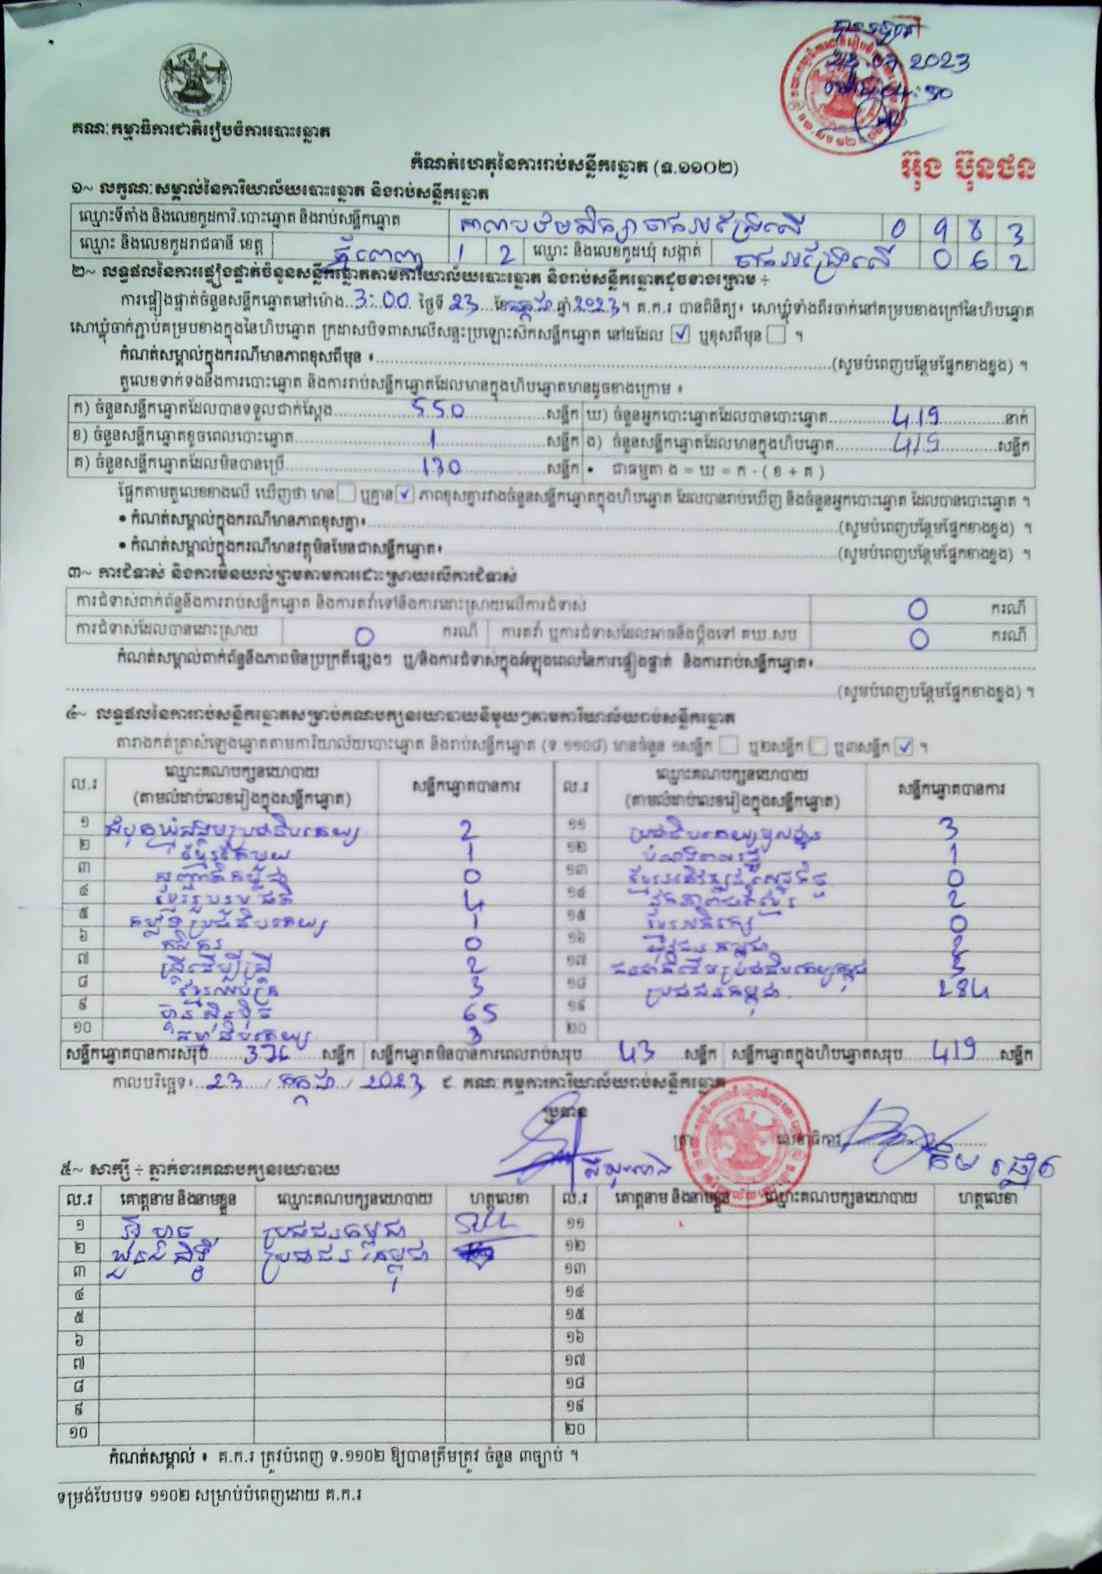 ២៣.០៧.2023
04:30
គណៈកម្មាធិការជាតិរៀបចំការបោះឆ្នោត
កំណត់ហេតុនៃការរាប់សន្លឹកឆ្នោត (ទ.១១០២)
អ៊ុង ប៊ុនថន
១~ លក្ខណៈសម្គាល់នៃការិយាល័យបោះឆ្នោត និងរាប់សន្លឹកឆ្នោត
ឈ្មោះទីតាំង និងលេខកូដការិ.បោះឆ្នោត និងរាប់សន្លឹកឆ្នោត 0 9 8 3
ឈ្មោះ និងលេខកូដរាជធានី ខេត្ត ភ្នំពេញ 1 2 ឈ្មោះ និងលេខកូដឃុំ សង្កាត់ 0 6 2
២~ លទ្ធផលនៃការផ្ទៀងផ្ទាត់ចំនួនសន្លឹកឆ្នោតតាមការិយាល័យបោះឆ្នោត និងរាប់សន្លឹកឆ្នោតដូចខាងក្រោម ÷
ការផ្ទៀងផ្ទាត់ចំនួនសន្លឹកឆ្នោតនៅម៉ោង..3:00. ថ្ងៃទី 23 ..ខែកក្កដា.ឆ្នាំ.2023។ គ.ក.រ បានពិនិត្យ៖ សោឃ្លុំទាំងពីរចាក់នៅគម្របខាងក្រៅនៃហិបឆ្នោត
សោឃ្លុំចាក់ភ្ជាប់គម្របខាងក្នុងនៃហិបឆ្នោត ក្រដាសបិទពាសលើសន្ទះប្រឡោះស៊កសន្លឹកឆ្នោត នៅដដែល ☑ ឬខុសពីមុន ☐ ។
កំណត់សម្គាល់ក្នុងករណីមានភាពខុសពីមុន ៖ (សូមបំពេញបន្ថែមផ្នែកខាងខ្នង) ។
តួលេខទាក់ទងនឹងការបោះឆ្នោត និងការរាប់សន្លឹកឆ្នោតដែលមានក្នុងហិបឆ្នោតមានដូចខាងក្រោម ៖
ក) ចំនួនសន្លឹកឆ្នោតដែលបានទទួលជាក់ស្តែង 550 សន្លឹក ឃ) ចំនួនអ្នកបោះឆ្នោតដែលបានបោះឆ្នោត 419 នាក់
ខ) ចំនួនសន្លឹកឆ្នោតខូចពេលបោះឆ្នោត 1 សន្លឹក ង) ចំនួនសន្លឹកឆ្នោតដែលមានក្នុងហិបឆ្នោត 419 សន្លឹក
គ) ចំនួនសន្លឹកឆ្នោតដែលមិនបានប្រើ 130 សន្លឹក • ជាធម្មតា ង = ឃ = ក - ( ខ + គ )
ផ្អែកតាមតួលេខខាងលើ ឃើញថា មាន ☐ ឬគ្មាន ☑ ភាពខុសគ្នារវាងចំនួនសន្លឹកឆ្នោតក្នុងហិបឆ្នោត ដែលបានរាប់ឃើញ និងចំនួនអ្នកបោះឆ្នោត ដែលបានបោះឆ្នោត ។
• កំណត់សម្គាល់ក្នុងករណីមានភាពខុសគ្នា៖ (សូមបំពេញបន្ថែមផ្នែកខាងខ្នង) ។
• កំណត់សម្គាល់ក្នុងករណីមានវត្ថុមិនមែនជាសន្លឹកឆ្នោត៖ (សូមបំពេញបន្ថែមផ្នែកខាងខ្នង) ។
៣~ ការជំទាស់ និងការមិនយល់ព្រមតាមការដោះស្រាយលើការជំទាស់
ការជំទាស់ពាក់ព័ន្ធនឹងការរាប់សន្លឹកឆ្នោត និងការតវ៉ាទៅនឹងការដោះស្រាយលើការជំទាស់ 0 ករណី
ការជំទាស់ដែលបានដោះស្រាយ 0 ករណី ការតវ៉ា ឬការជំទាស់ដែលអាចនឹងប្តឹងទៅ គឃ.សប 0 ករណី
កំណត់សម្គាល់ពាក់ព័ន្ធនឹងភាពមិនប្រក្រតីផ្សេងៗ ឬ/និងការជំទាស់ក្នុងអំឡុងពេលនៃការផ្ទៀងផ្ទាត់ និងការរាប់សន្លឹកឆ្នោត៖
(សូមបំពេញបន្ថែមផ្នែកខាងខ្នង) ។
៤~ លទ្ធផលនៃការរាប់សន្លឹកឆ្នោតសម្រាប់គណបក្សនយោបាយនីមួយៗតាមការិយាល័យរាប់សន្លឹកឆ្នោត
តារាងកត់ត្រាសំឡេងឆ្នោតតាមការិយាល័យបោះឆ្នោត និងរាប់សន្លឹកឆ្នោត (ទ.១១០៨) មានចំនួន ១សន្លឹក ☐ ឬ២សន្លឹក ☐ ឬ៣សន្លឹក ☑ ។
ល.រ ឈ្មោះគណបក្សនយោបាយ សន្លឹកឆ្នោតបានការ ល.រ ឈ្មោះគណបក្សនយោបាយ សន្លឹកឆ្នោតបានការ
(តាមលំដាប់លេខរៀងក្នុងសន្លឹកឆ្នោត) (តាមលំដាប់លេខរៀងក្នុងសន្លឹកឆ្នោត)
១ សំបុកឃ្មុំសង្គមប្រជាធិបតេយ្យ 2 ១១ 3
២ ខ្មែរតែមួយ 1 ១២ 1
៣ 0 ១៣ 0
៤ ខ្មែររួបរួមជាតិ 4 ១៤ 2
៥ 1 ១៥ 0
៦ កសិករ 0 ១៦
៧ ស្ត្រីដើម្បីស្ត្រី 2 ១៧
៨ 3 ១៨ ប្រជាជនកម្ពុជា 284
៩ ហ៊្វុនស៊ិនប៉ិច 65 ១៩
១០ 3 ២០
សន្លឹកឆ្នោតបានការសរុប 376 សន្លឹក សន្លឹកឆ្នោតមិនបានការពេលរាប់សរុប 43 សន្លឹក សន្លឹកឆ្នោតក្នុងហិបឆ្នោតសរុប 419 សន្លឹក
កាលបរិច្ឆេទ៖ 23 / កក្កដា / 2023 ៤ គណៈកម្មការការិយាល័យរាប់សន្លឹកឆ្នោត
ប្រធាន ត្រា លេខាធិការ
៥~ សាក្សី ÷ ភ្នាក់ងារគណបក្សនយោបាយ
ល.រ គោត្តនាម និងនាមខ្លួន ឈ្មោះគណបក្សនយោបាយ ហត្ថលេខា ល.រ គោត្តនាម និងនាមខ្លួន ឈ្មោះគណបក្សនយោបាយ ហត្ថលេខា
១ ប្រជាជនកម្ពុជា ១១
២ ប្រជាជនកម្ពុជា ១២
៣ ១៣
៤ ១៤
៥ ១៥
៦ ១៦
៧ ១៧
៨ ១៨
៩ ១៩
១០ ២០
កំណត់សម្គាល់ ៖ គ.ក.រ ត្រូវបំពេញ ទ.១១០២ ឱ្យបានត្រឹមត្រូវ ចំនួន ៣ច្បាប់ ។
ទម្រង់បែបបទ ១១០២ សម្រាប់បំពេញដោយ គ.ក.រ